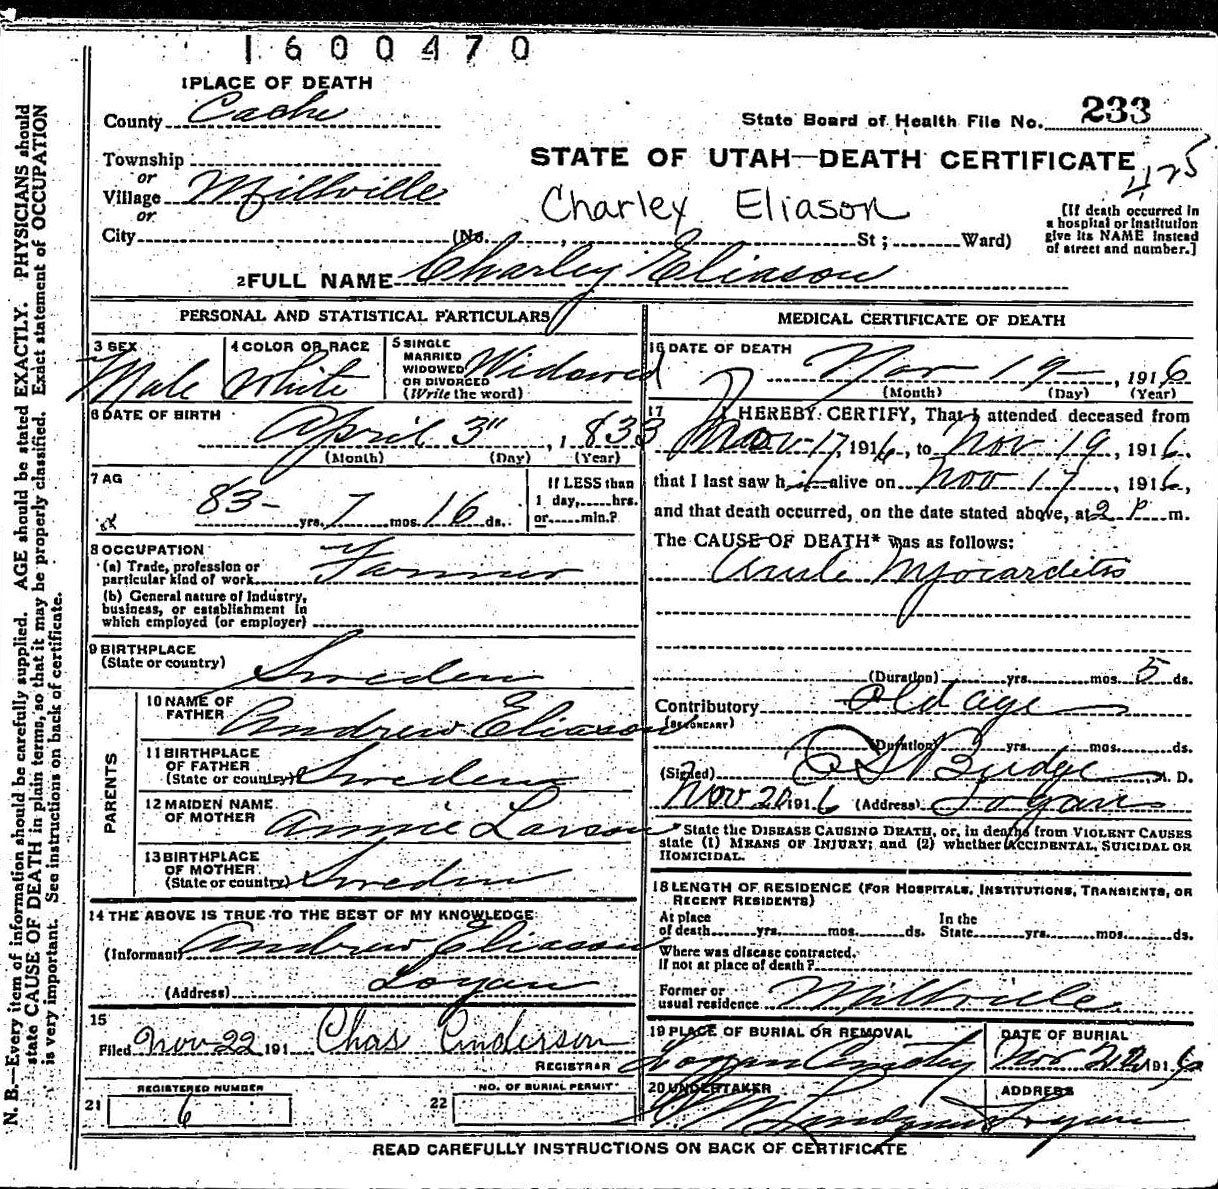 1600470
1 PLACE OF DEATH
County Cache
State Board of Health File No. 233
Township
or
Village Millville
or
City (No. , St; Ward)
STATE OF UTAH—DEATH CERTIFICATE
425
Charley Eliason
[If death occurred in
a hospital or institution
give its NAME instead
of street and number.]
2 FULL NAME Charley Eliason
PERSONAL AND STATISTICAL PARTICULARS
3 SEX
Male
4 COLOR OR RACE
White
5 SINGLE
MARRIED
WIDOWED
OR DIVORCED
(Write the word)
Widowed
6 DATE OF BIRTH
April 3" , 1833
(Month) (Day) (Year)
7 AG
83 yrs. 7 mos. 16 ds.
If LESS than
1 day, hrs.
or min.?
8 OCCUPATION
(a) Trade, profession or
particular kind of work Farmer
(b) General nature of industry,
business, or establishment in
which employed (or employer)
9 BIRTHPLACE
(State or country)
Sweden
PARENTS
10 NAME OF
FATHER Andrew Eliason
11 BIRTHPLACE
OF FATHER
(State or country) Sweden
12 MAIDEN NAME
OF MOTHER Annie Larson
13 BIRTHPLACE
OF MOTHER
(State or country) Sweden
14 THE ABOVE IS TRUE TO THE BEST OF MY KNOWLEDGE
(Informant) Andrew Eliason
(Address) Logan
15
Filed Nov 22 191 Chas Anderson
REGISTRAR
REGISTERED NUMBER
21 6
NO. OF BURIAL PERMIT
22
MEDICAL CERTIFICATE OF DEATH
16 DATE OF DEATH
Nov 19 , 1916
(Month) (Day) (Year)
17 I HEREBY CERTIFY, That I attended deceased from
Nov 17, 1916, to Nov 19, 1916.
that I last saw him alive on Nov 17, 1916,
and that death occurred, on the date stated above, at 2 P m.
The CAUSE OF DEATH* was as follows:
Acute Myocarditis
(Duration) yrs. mos. 5 ds.
Contributory Old age
(SECONDARY)
(Duration) yrs. mos. ds.
(Signed) Budge M. D.
Nov 20 1916 (Address) Logan
*State the DISEASE CAUSING DEATH, or, in deaths from VIOLENT CAUSES
state (1) MEANS OF INJURY; and (2) whether ACCIDENTAL, SUICIDAL OR
HOMICIDAL.
18 LENGTH OF RESIDENCE (FOR HOSPITALS, INSTITUTIONS, TRANSIENTS, OR
RECENT RESIDENTS)
At place
of death yrs. mos. ds.
In the
State yrs. mos. ds.
Where was disease contracted,
If not at place of death?
Former or
usual residence Millville
19 PLACE OF BURIAL OR REMOVAL
Logan Cemetery
DATE OF BURIAL
Nov 22 1916
20 UNDERTAKER
ADDRESS
Logan
READ CAREFULLY INSTRUCTIONS ON BACK OF CERTIFICATE
N. B.—Every item of information should be carefully supplied. AGE should be stated EXACTLY. PHYSICIANS should
state CAUSE OF DEATH in plain terms, so that it may be properly classified. Exact statement of OCCUPATION
is very important. See instructions on back of certificate.